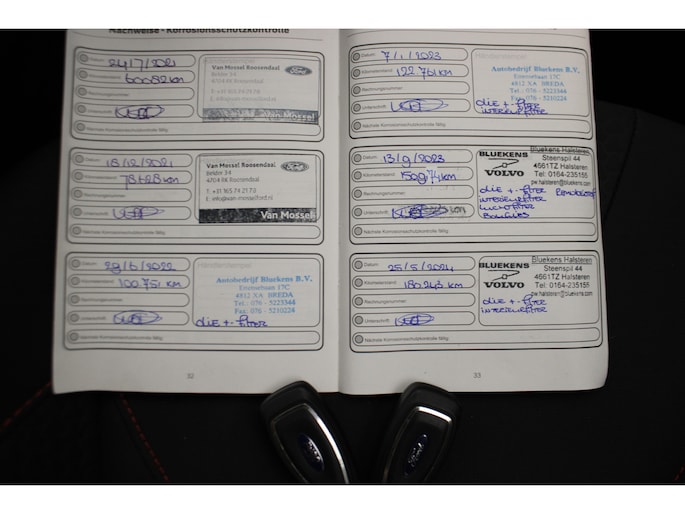 Nachweise - Korrosionsschutzkontrolle
Datum 24/7/2021
Kilometerstand 60082 km
Rechnungsnummer
Unterschrift
Nächste Korrosionsschutzkontrolle fällig:
Van Mossel Roosendaal
Belder 34
4704 RK Roosendaal
Ford
Van Mossel
Datum 18/12/2021
Kilometerstand 78428 km
Rechnungsnummer
Unterschrift
Nächste Korrosionsschutzkontrolle fällig:
Van Mossel Roosendaal
Belder 34
4704 RK Roosendaal
Ford
T: +31 165 74 21 70
E: info@van-mosselford.nl
Van Mossel
Datum 29/6/2022
Kilometerstand 100.751 km
Rechnungsnummer
Unterschrift
Nächste Korrosionsschutzkontrolle fällig:
Händlerstempel
Autobedrijf Bluekens B.V.
Ettensebaan 17C
4812 XA BREDA
Tel. 076 - 5223344
Fax. 076 - 5210224
olie + filter
32
Datum 7/1/2023
Kilometerstand 122.761 km
Rechnungsnummer
Unterschrift
Nächste Korrosionsschutzkontrolle fällig:
Händlerstempel
Autobedrijf Bluekens B.V.
Ettensebaan 17C
4812 XA BREDA
Tel. 076 - 5223344
Fax. 076 - 5210224
olie + filter
interieurfilter
Datum 13/9/2023
Kilometerstand
Rechnungsnummer
Unterschrift
Nächste Korrosionsschutzkontrolle fällig:
Bluekens Halsteren
BLUEKENS
VOLVO
Steenspil 44
4661TZ Halsteren
Tel: 0164-235155
pw.halsteren@bluekens.com
olie + filter
interieurfilter
luchtfilter
bougies
Datum 25/5/2024
Kilometerstand 180.243 km
Rechnungsnummer
Unterschrift
Nächste Korrosionsschutzkontrolle fällig:
Bluekens Halsteren
BLUEKENS
VOLVO
Steenspil 44
4661TZ Halsteren
Tel: 0164-235155
pw.halsteren@bluekens.com
olie + filter
interieurfilter
33
Ford